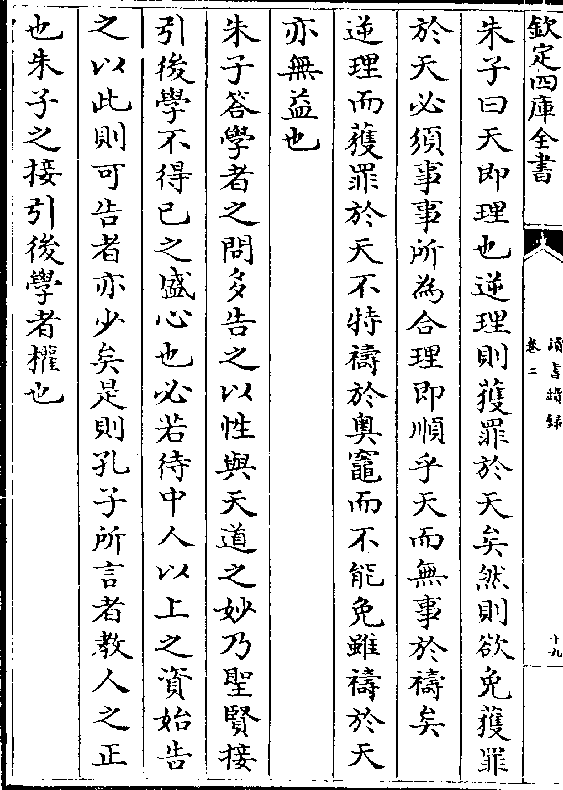 欽定四庫全書
讀書錄
卷二
十九
朱子曰天即理也逆理則獲罪於天矣然則欲免獲罪
於天必須事事所為合理即順乎天而無事於禱矣
逆理而獲罪於天不特禱於奧竈而不能免雖禱於天
亦無益也
朱子答學者之問多告之以性與天道之妙乃聖賢接
引後學不得已之盛心也必若待中人以上之資始告
之以此則可告者亦少矣是則孔子所言者教人之正
也朱子之接引後學者權也